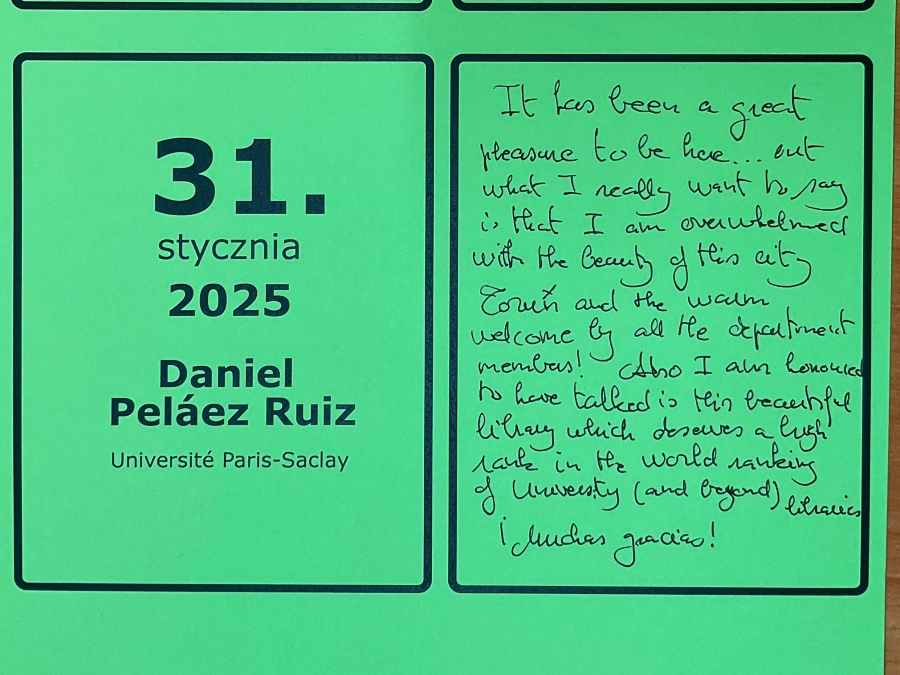 31.
stycznia
2025
Daniel
Peláez Ruiz
Université Paris-Saclay
It has been a great
pleasure to be here... but
what I really want to say
is that I am overwhelmed
with the beauty of this city
Toruń and the warm
welcome by all the department
members! Also I am honoured
to have talked is this beautiful
library which deserves a high
rank in the world ranking
of University (and beyond) libraries
¡Muchas gracias!